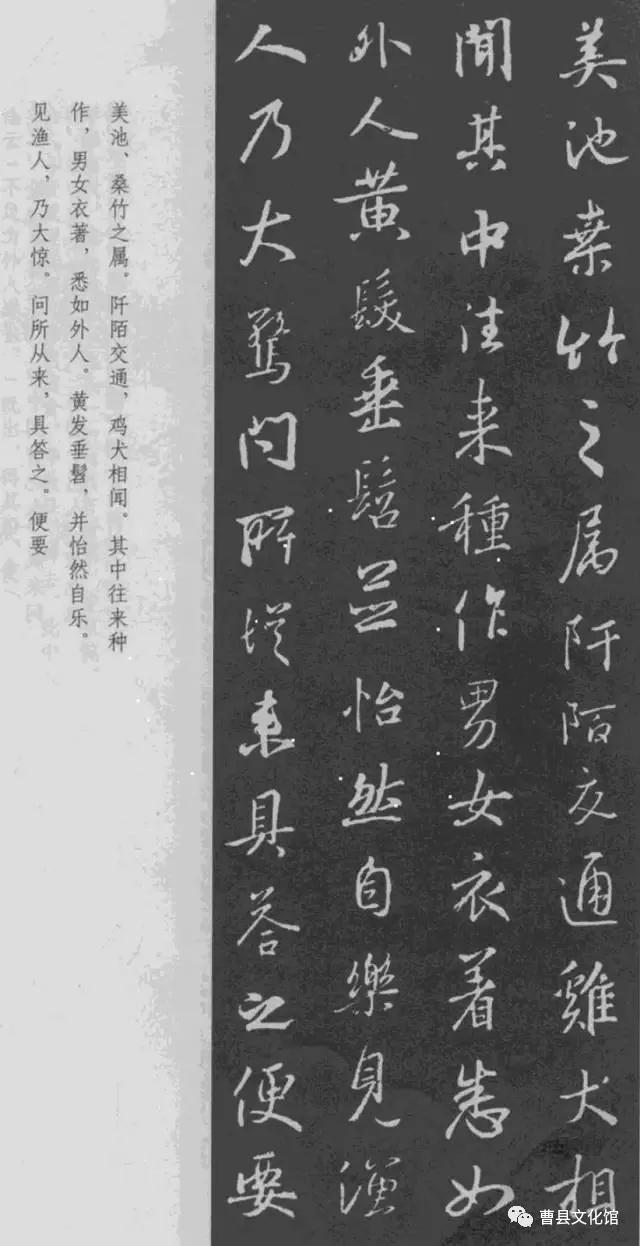 美池桒竹之属阡陌交通雞犬相
聞其中往来種作男女衣着悉如
外人黄髮垂髫並怡然自樂見漁
人乃大驚問所從来具答之便要
美池、桑竹之属。阡陌交通，鸡犬相闻。其中往来种
作，男女衣著，悉如外人。黄发垂髫，并怡然自乐。
见渔人，乃大惊。问所从来，具答之。便要
曹县文化馆